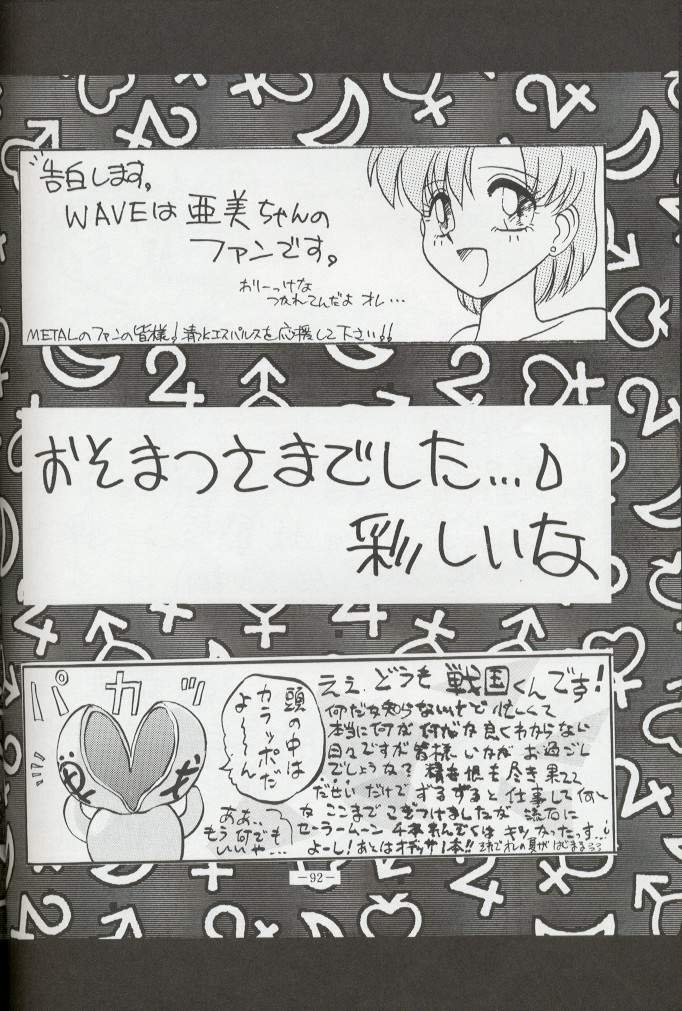 告白します。
WAVEは亜美ちゃんの
ファンです。
おりーっけな
つかれてんだよ オレ…
METALのファンの皆様!清水エスパルスを応援して下さい!!
おそまつさまでした…♪
彩 しいな
パカッ
頭の中は
カラッポだ
よ〜〜ん
ああ…
もう何でも
いいや…
ええ、どうも戦国くんです!
何だか知らないけど忙しくて
本当に何が何だか良くわからない
日々ですが皆様いかがお過ごし
でしょうか?精も根も尽き果てて
だせいだけでずるずると仕事して何と
かここまでこぎつけましたが流石に
セーラームーン 4本れんぞくは キツかったっす…!
よーし!あとはオデッサ1本!!それでオレの夏がはじまるっっ
—92—